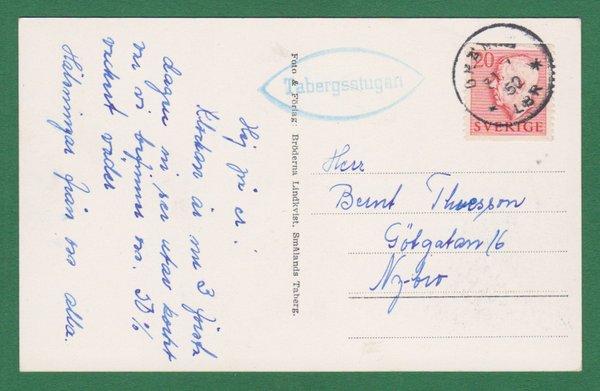 Hej på er!
Klockan är nu 3 första
dagen ni ser utav kortet
nu vi befinner oss. 50%
vackert väder
Hälsningar från oss alla.
Foto & Förlag: Bröderna Lindkvist, Smålands Taberg.
Tabergsstugan
20
SVERIGE
52
LBR
Herr
Bernt Thuresson
Götgatan 16
Nybro